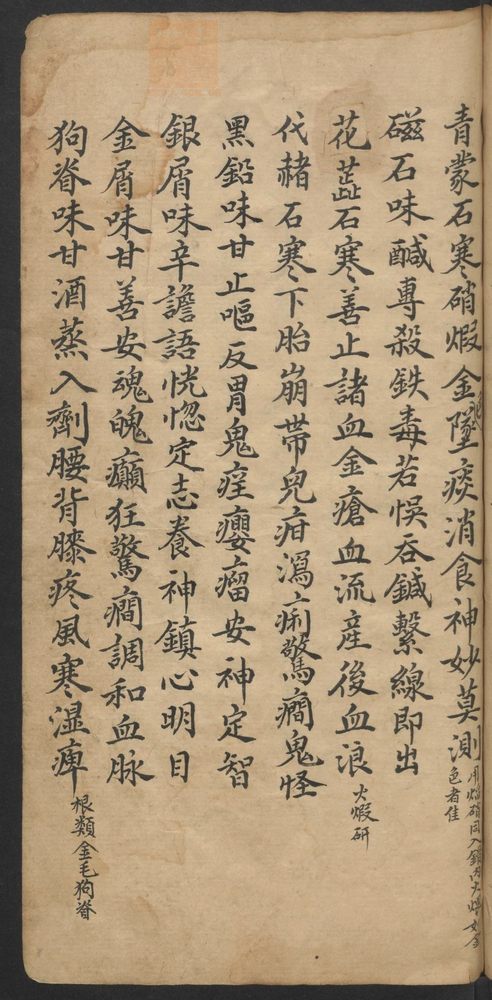 青蒙石寒硝煅金墜痰消食神妙莫測 用焰硝同入鍋內火煅如金色者佳
磁石味醎專殺鉄毒若悮吞鍼繫線即出
花蕋石寒善止諸血金瘡血流產後血浪 火煅研
代赭石寒下胎崩帶兒疳瀉痢驚癇鬼怪
黑鉛味甘止嘔反胃鬼疰癭瘤安神定智
銀屑味辛譫語恍惚定志養神鎮心明目
金屑味甘善安魂魄癲狂驚癇調和血脉
狗脊味甘酒蒸入劑腰背膝疼風寒湿痺 根類金毛狗脊